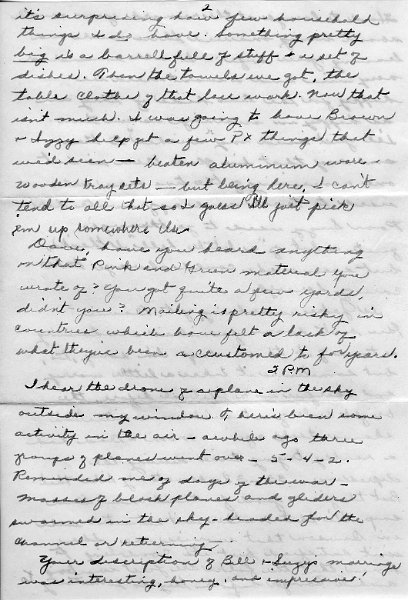 2
it's surprising how few household
things I do have. Something pretty
big is a barrell full of stuff & a set of
dishes. Then the towels we got, the
table cloths of that lace work. Now that
isn't much. I was going to have Brown
& Izzy help get a few PX things that
we'd seen — beaten aluminum ware —
wooden tray sets — but being here, I can't
tend to all that so I guess I'll just pick
'em up somewhere else.
Dave, have you heard anything
on that Pink and Green material you
wrote of? You got quite a few yards,
didn't you? Mailing is pretty risky in
countries which have felt a lack of
what they've been accustomed to for years.
2 PM
I hear the drone of a plane in the sky
outside my window. There's been some
activity in the air — awhile ago three
groups of planes went over — 5 - 4 - 2.
Reminded me of days of the war —
masses of black planes and gliders
swarmed in the sky — headed for the
channel or returning —
Your description of Bill & Suzy's marriage
was interesting, honey, and impressive!